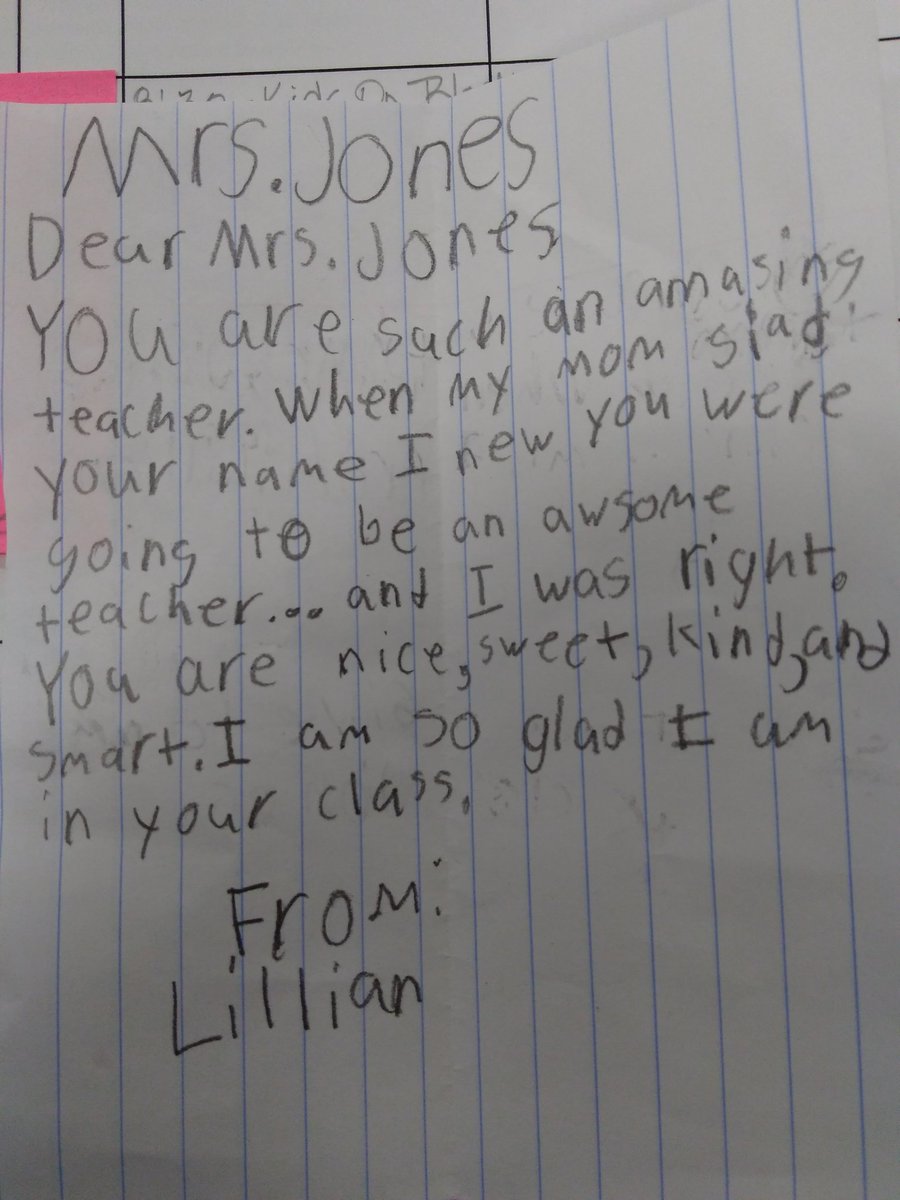 Mrs. Jones
Dear Mrs. Jones
You are such an amasing
teacher. When my mom siad
your name I new you were
going to be an awsome
teacher... and I was right.
You are nice, sweet, kind, and
smart. I am so glad I am
in your class.
From:
Lillian